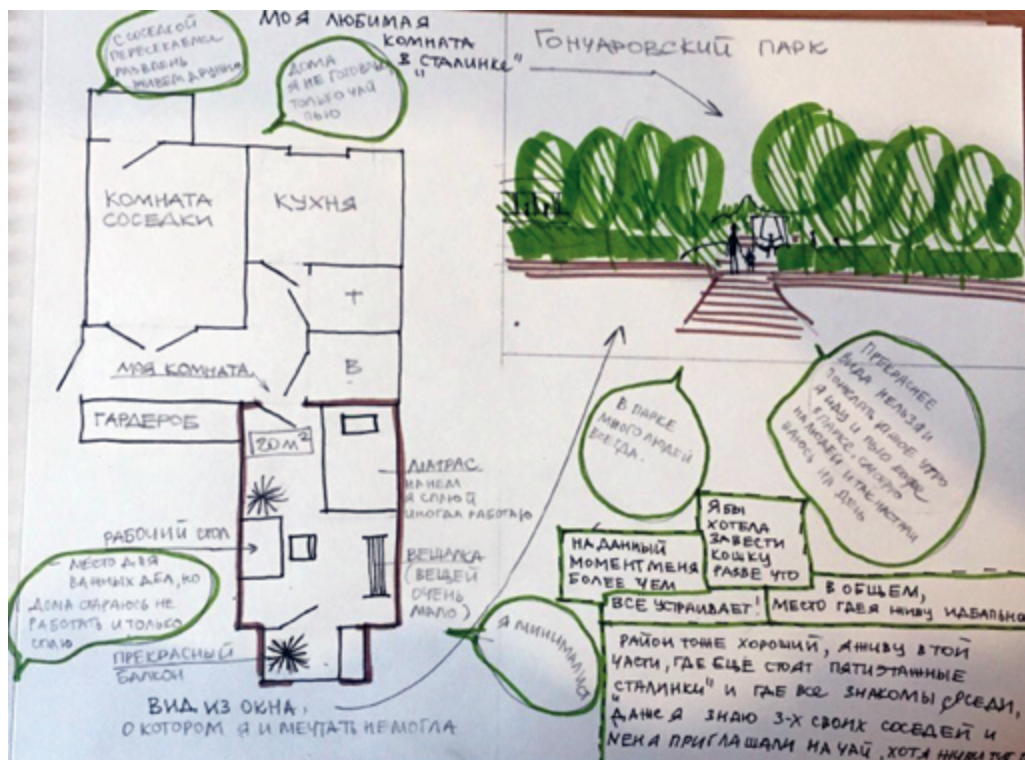 МОЯ ЛЮБИМАЯ
КОМНАТА
В "СТАЛИНКЕ"
С СОСЕДКОЙ
ПЕРЕСЕКАЕМСЯ
ЖИВЕМ ДРУЖНО
ДОМА
Я НЕ ГОТОВЛЮ,
ТОЛЬКО ЧАЙ
ПЬЮ
КОМНАТА
СОСЕДКИ
КУХНЯ
Т
В
МОЯ КОМНАТА
ГАРДЕРОБ
20 М²
МАТРАС
НА НЕМ
Я СПЛЮ И
ИНОГДА РАБОТАЮ
РАБОЧИЙ СТОЛ
МЕСТО ДЛЯ
ВАЖНЫХ ДЕЛ, НО
ДОМА СТАРАЮСЬ НЕ
РАБОТАТЬ И ТОЛЬКО
СПЛЮ
ВЕШАЛКА
(ВЕЩЕЙ
ОЧЕНЬ
МАЛО)
Я МИНИМАЛИСТ
ПРЕКРАСНЫЙ
БАЛКОН
ВИД ИЗ ОКНА,
О КОТОРОМ Я И МЕЧТАТЬ НЕ МОГЛА
ГОНЧАРОВСКИЙ ПАРК
В ПАРКЕ
МНОГО ЛЮДЕЙ
ВСЕГДА.
ПРЕКРАСНЕЕ
ВИДА НЕЛЬЗЯ И
ПОЖЕЛАТЬ, КАЖДОЕ УТРО
Я ИДУ И ПЬЮ КОФЕ
В ПАРКЕ, СМОТРЮ
НА ЛЮДЕЙ И ТАК НАСТРАИ
ВАЮСЬ НА ДЕНЬ
НА ДАННЫЙ
МОМЕНТ МЕНЯ
БОЛЕЕ ЧЕМ
ВСЕ УСТРАИВАЕТ!
Я БЫ
ХОТЕЛА
ЗАВЕСТИ
КОШКУ
РАЗВЕ ЧТО
В ОБЩЕМ,
МЕСТО ГДЕ Я ЖИВУ ИДЕАЛЬНО
РАЙОН ТОЖЕ ХОРОШИЙ, Я ЖИВУ В ТОЙ
ЧАСТИ, ГДЕ ЕЩЁ СТОЯТ ПЯТИЭТАЖНЫЕ
"СТАЛИНКИ" И ГДЕ ВСЕ ЗНАКОМЫ СОСЕДИ,
ДАЖЕ Я ЗНАЮ 3-Х СВОИХ СОСЕДЕЙ И
МЕНЯ ПРИГЛАШАЛИ НА ЧАЙ, ХОТЯ ЖИВУ